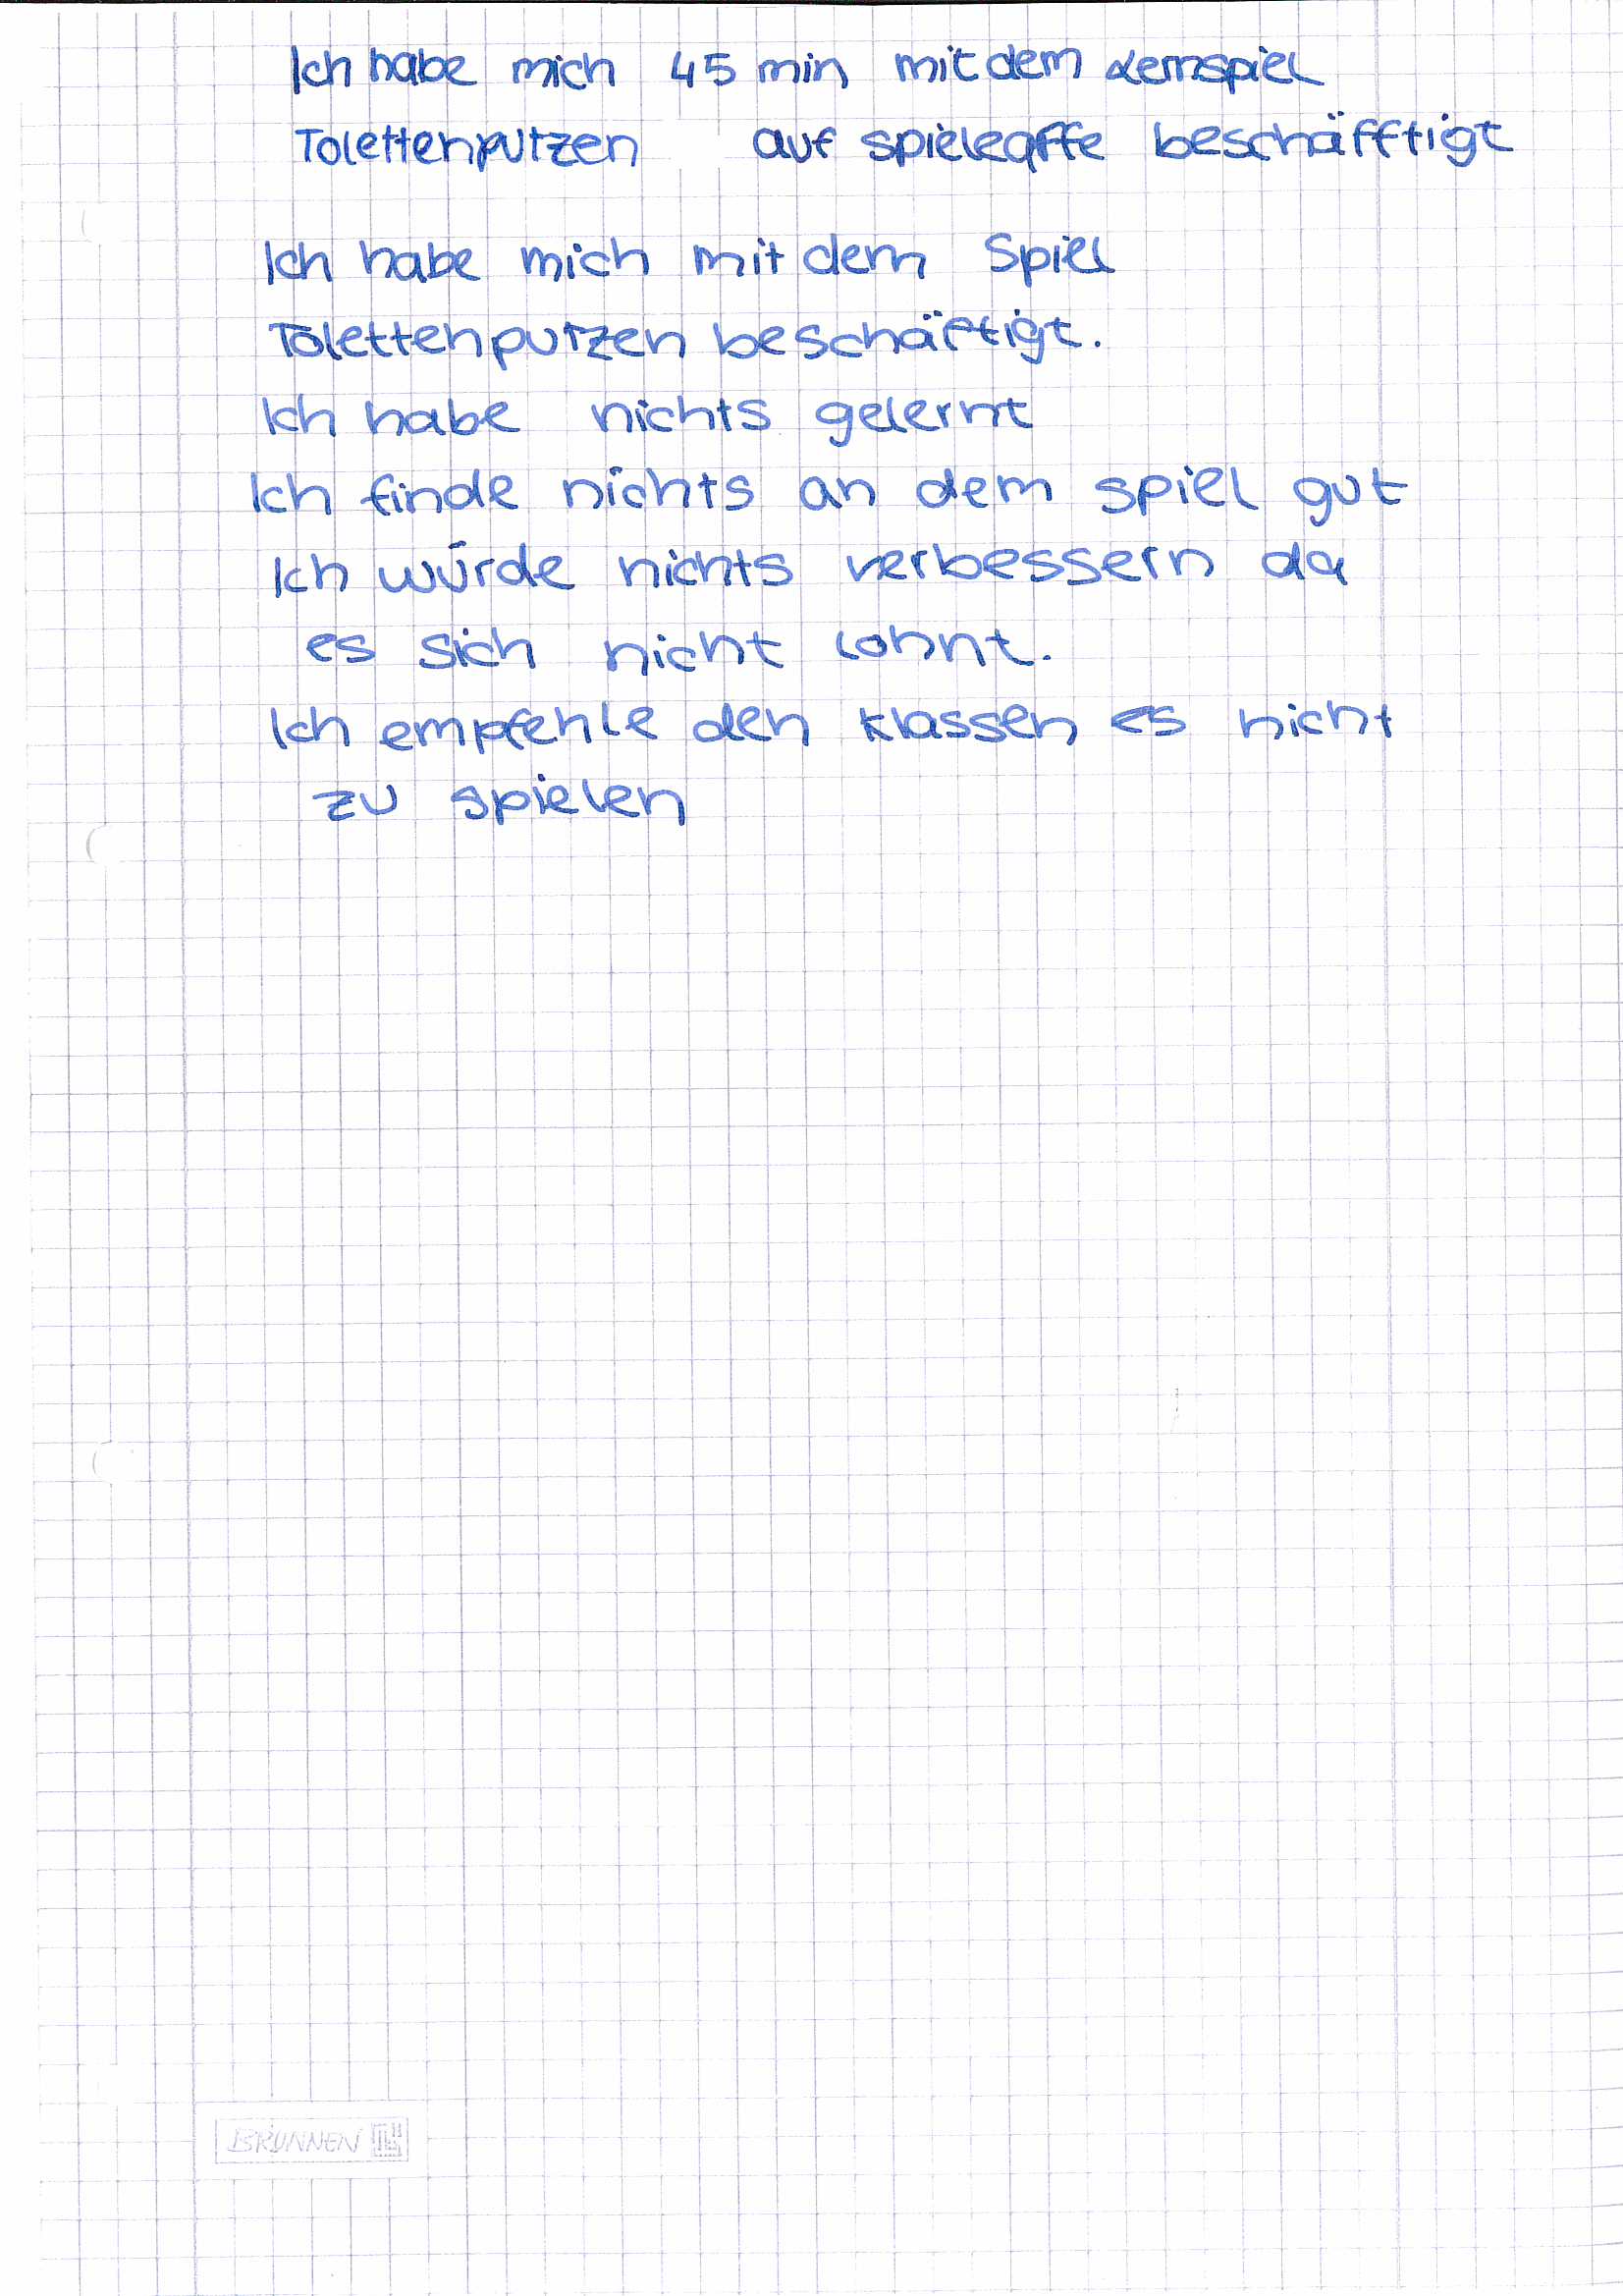 Ich habe mich 45 min mit dem Lernspiel
Tolettenputzen auf spieleaffe beschäfftigt
Ich habe mich mit dem Spiel
Tolettenputzen beschäftigt.
Ich habe nichts gelernt
Ich finde nichts an dem spiel gut
Ich würde nichts verbessern da
es sich nicht lohnt.
Ich empfehle den klassen es nicht
zu spielen
BRUNNEN